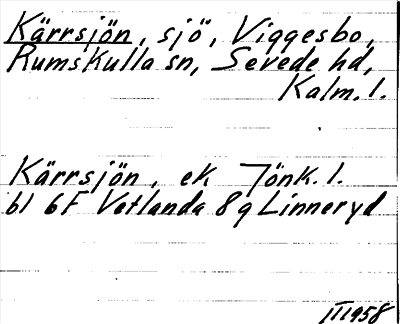 Kärrsjön, sjö, Viggesbo,
Rumskulla sn, Sevede hd,
Kalm. l.
Kärrsjön, ek Jönk. l.
bl 6F Vetlanda 8g Linneryd
III 1958